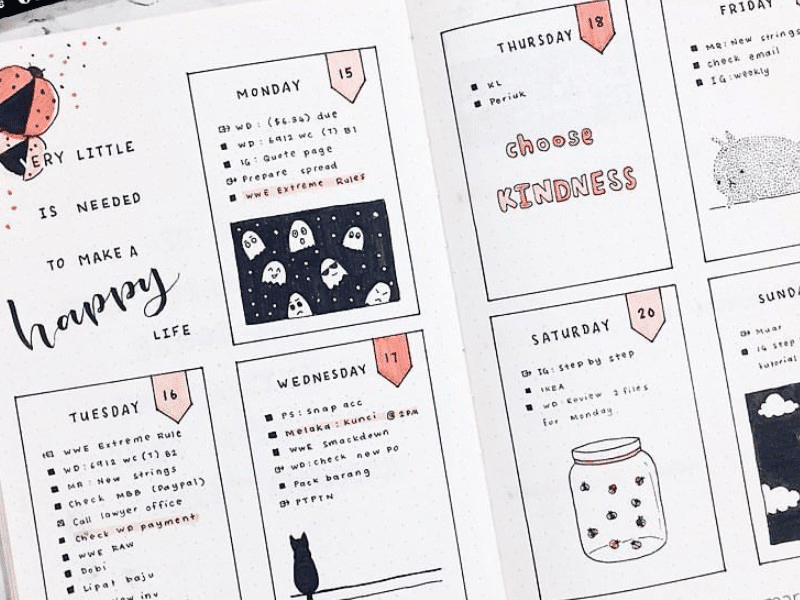 VERY LITTLE
IS NEEDED
TO MAKE A
happy
LIFE
MONDAY
15
WD: ($6.36) due
WD: 6912 WC (T) B1
IG: Quote page
Prepare spread
WWE Extreme Rules
TUESDAY
16
WWE Extreme Rule
WD: 6912 WC (T) B2
MR: New strings
Check MBB (PayPal)
Call lawyer office
Check WD payment
WWE RAW
Dobi
Lipat baju
inv
WEDNESDAY
17
PS: Snap acc
Melaka: Kunci @ 2PM
WWE Smackdown
WD: check new PO
Pack barang
PTPTN
THURSDAY
18
KL
Periuk
choose
KINDNESS
FRIDAY
MR: New strings
Check email
IG: weekly
SATURDAY
20
IG: Step by step
IKEA
WD: Review 2 files
for Monday.
SUNDA
Muar
IG step
tutorial